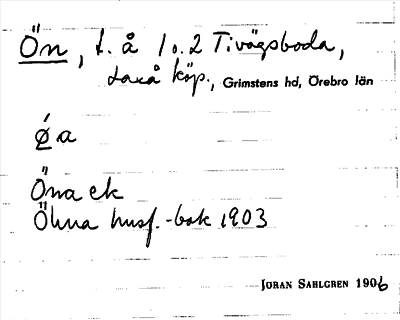 Ön, t. å 1 o. 2 Tivägsboda,
Laxå köp., Grimstens hd, Örebro län
Ǿa
Öna ek
Öhna husf.-bok 1903
JÖRAN SAHLGREN 1906